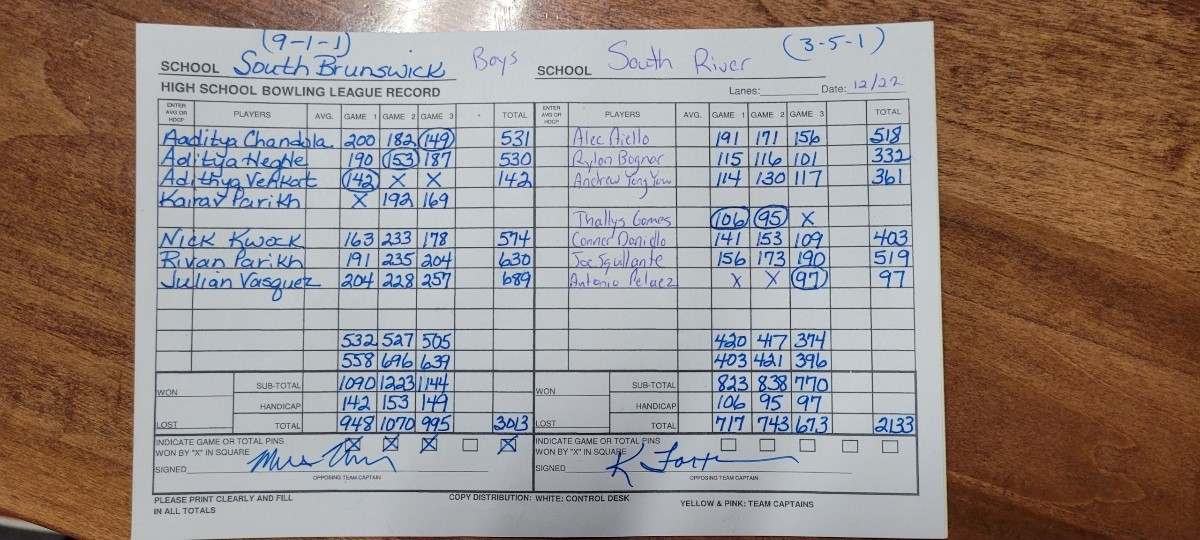 (9-1-1) (3-5-1)
SCHOOL South Brunswick Boys SCHOOL South River
HIGH SCHOOL BOWLING LEAGUE RECORD Lanes: Date: 12/22
ENTER AVG OR HDCP PLAYERS AVG. GAME 1 GAME 2 GAME 3 TOTAL ENTER AVG OR HDCP PLAYERS AVG. GAME 1 GAME 2 GAME 3 TOTAL
Aaditya Chandola 200 182 149 531 Alec Aiello 191 171 156 518
Aditya Hegde 190 153 187 530 Rylan Bognar 115 116 101 332
Adithya Venkat 142 X X 142 Andrew 114 130 117 361
Kairav Parikh X 192 169
Thallys Gomes 106 95 X
Nick Kwock 163 233 178 574 Conner Daniello 141 153 109 403
Rivan Parikh 191 235 204 630 Joe Squllante 156 173 190 519
Julian Vasquez 204 228 257 689 Antonio Pelaez X X 97 97
532 527 505 420 417 374
558 696 639 403 421 396
WON SUB-TOTAL 1090 1223 1144 WON SUB-TOTAL 823 838 770
HANDICAP 142 153 149 HANDICAP 106 95 97
LOST TOTAL 948 1070 995 3013 LOST TOTAL 717 743 673 2133
INDICATE GAME OR TOTAL PINS X X X X INDICATE GAME OR TOTAL PINS
WON BY "X" IN SQUARE WON BY "X" IN SQUARE
SIGNED SIGNED
OPPOSING TEAM CAPTAIN OPPOSING TEAM CAPTAIN
PLEASE PRINT CLEARLY AND FILL COPY DISTRIBUTION: WHITE: CONTROL DESK YELLOW & PINK: TEAM CAPTAINS
IN ALL TOTALS